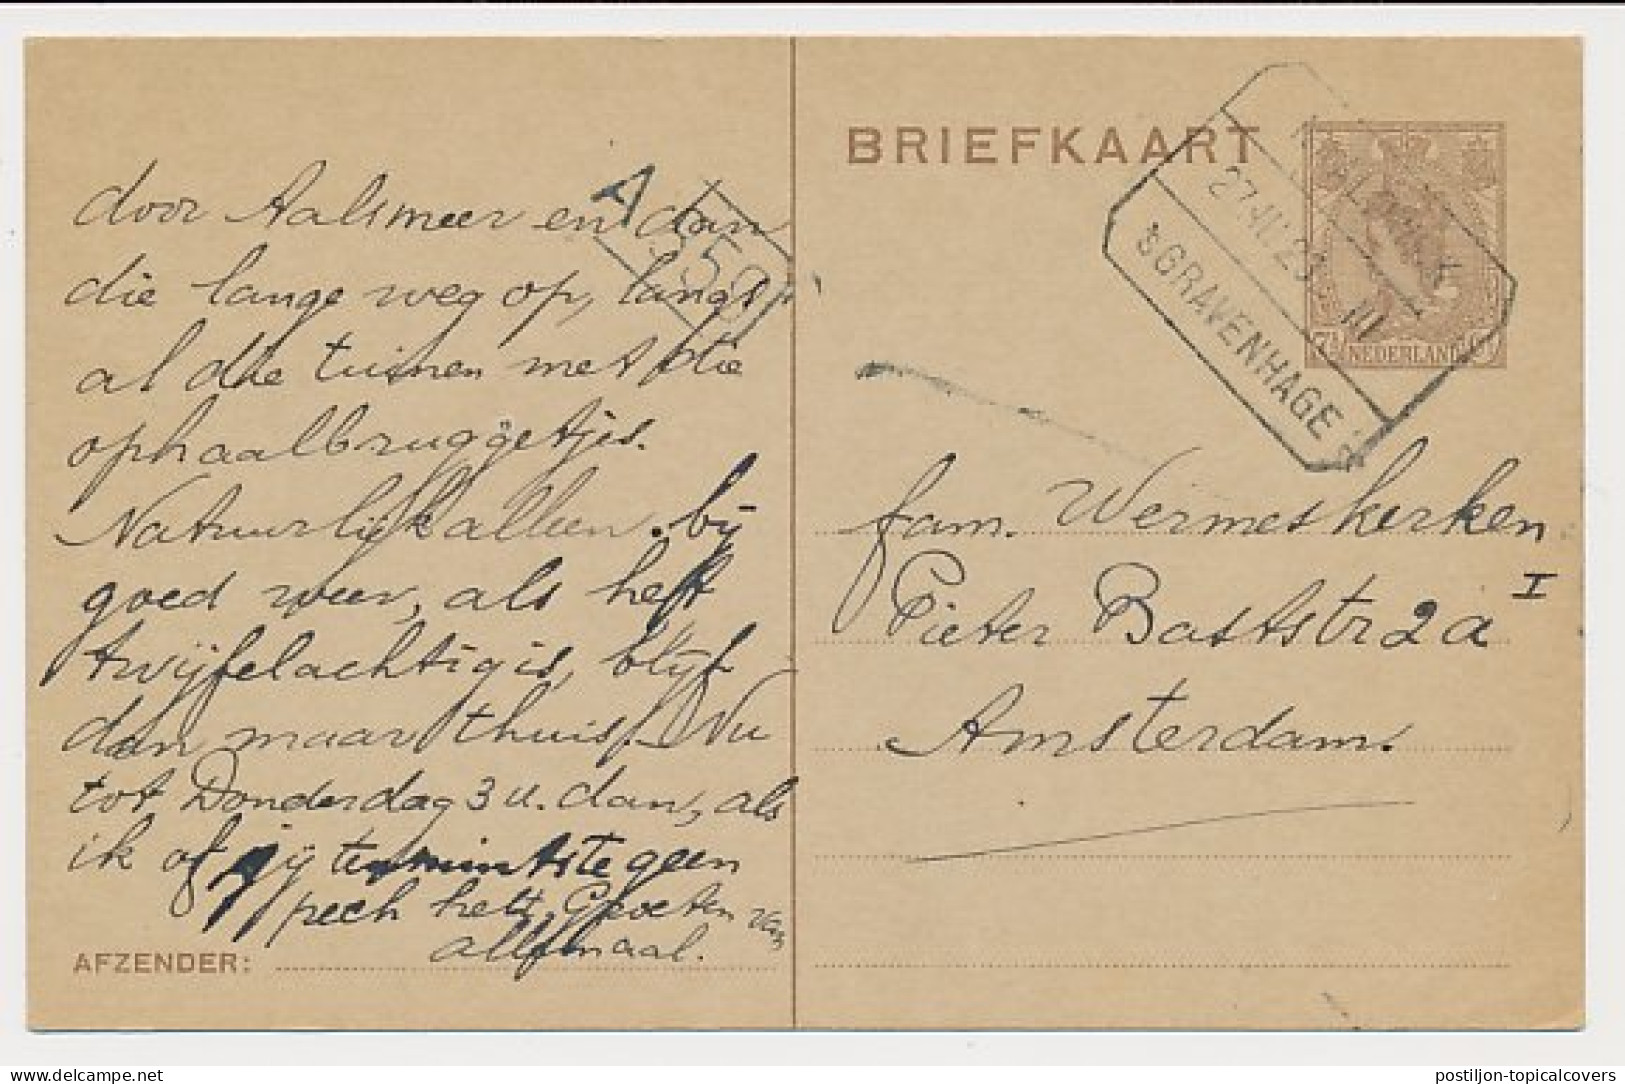 door Aalsmeer en dan
die lange weg op, langs
al die tuinen met die
ophaalbruggetjes.
Natuurlijk alleen bij
goed weer, als het
twijfelachtig is, blijf
dan maar thuis. Nu
tot Donderdag 3 u. dan, als
ik of jij tenminste geen
pech hebt. Groeten van
allemaal.
AFZENDER:
A 350
BRIEFKAART
27.VI.23 III
'S GRAVENHAGE
7½ NEDERLAND
fam. Wermeskerken
Pieter Baststr 2a I
Amsterdam.
delcampe.net
postiljon-topicalcovers